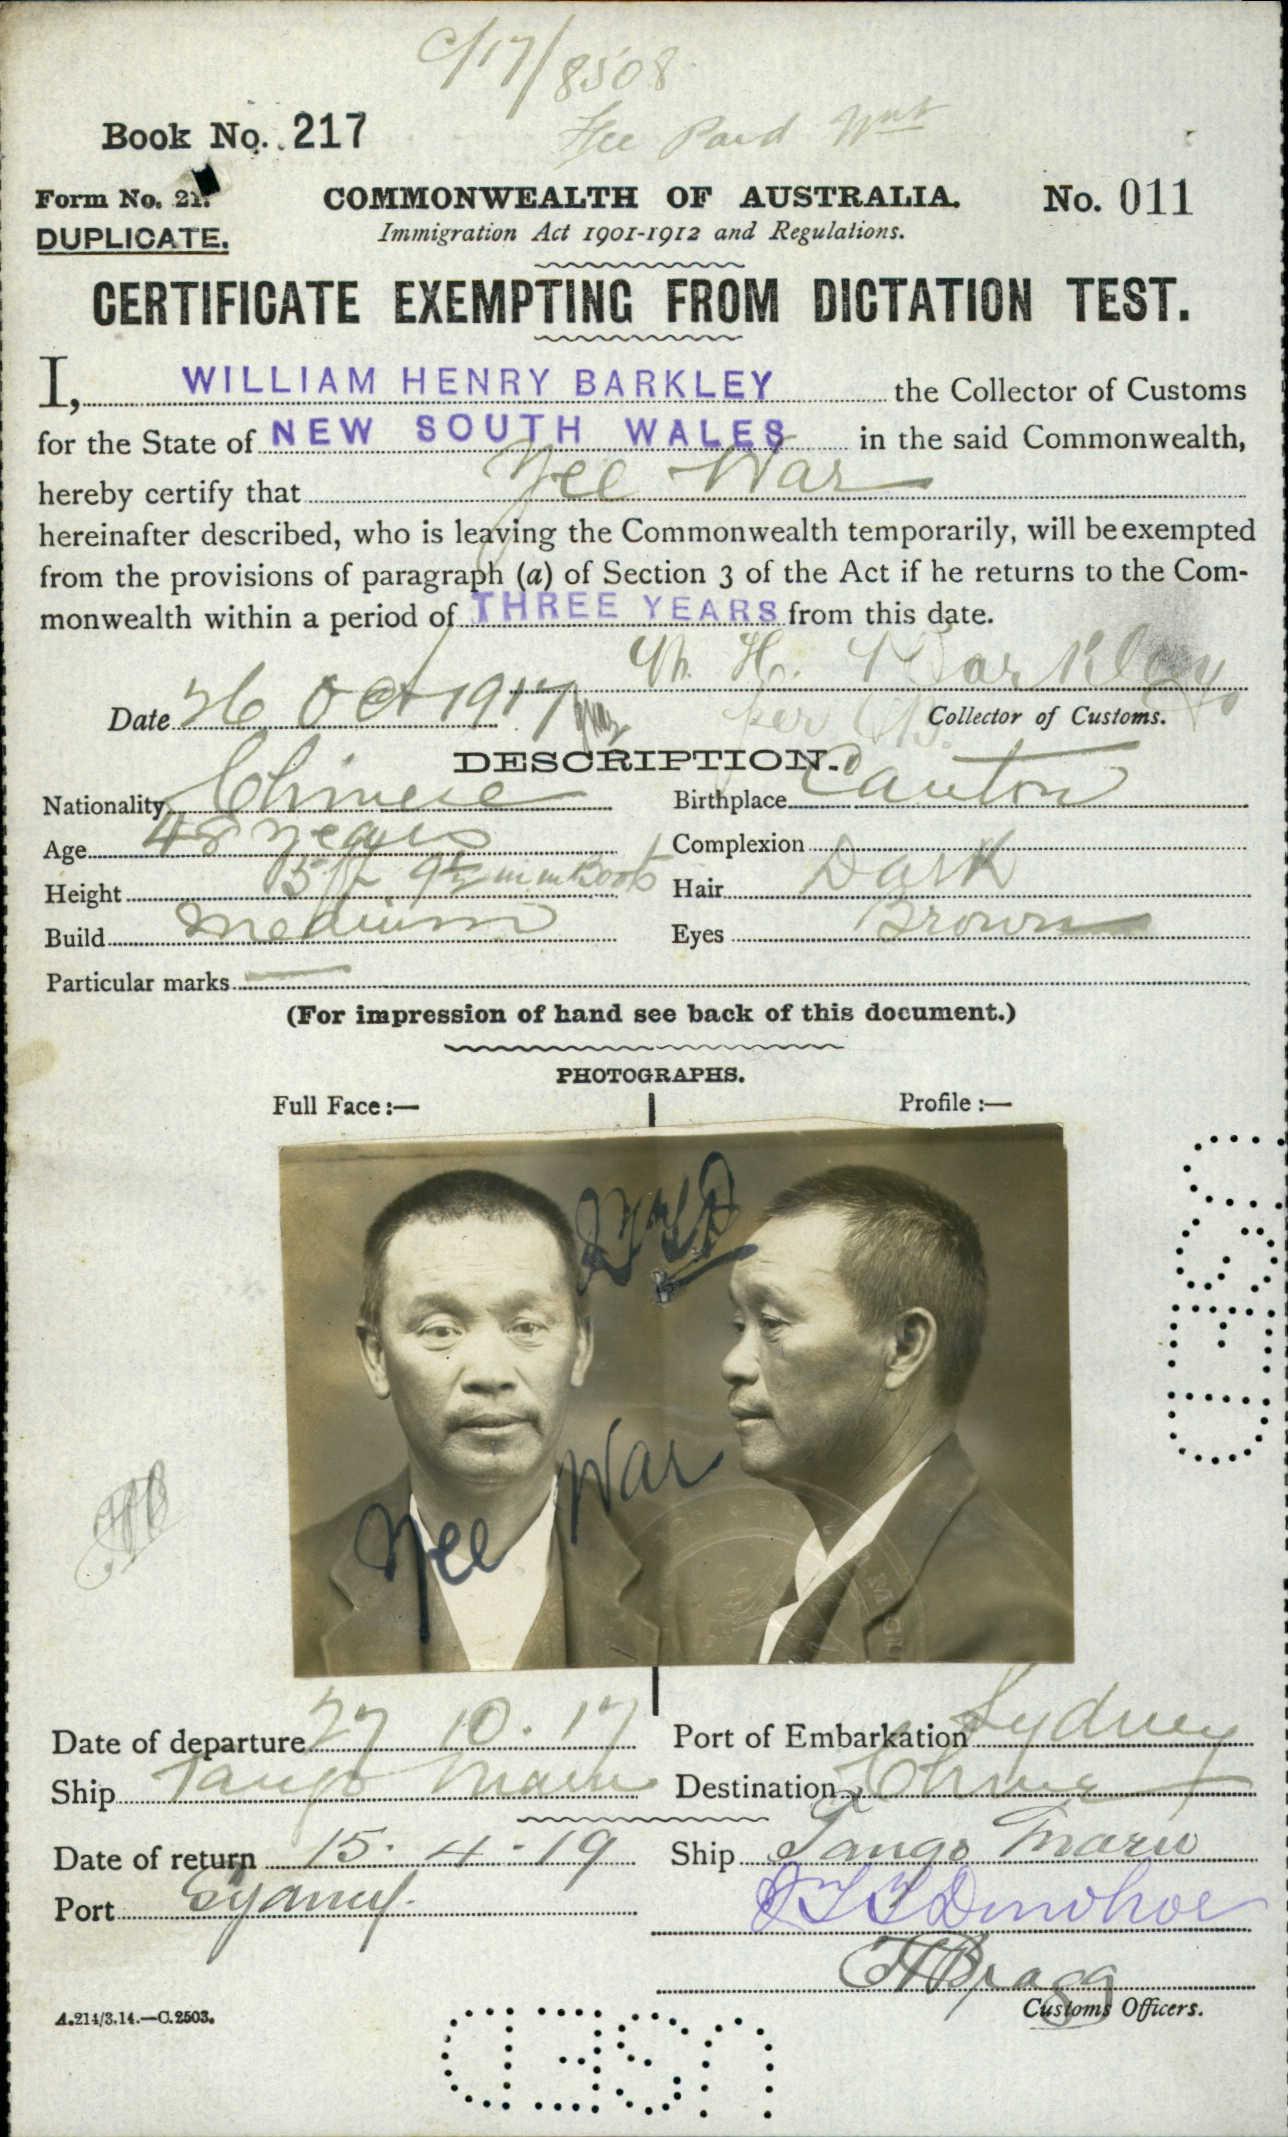 C/17/8508
Fee Paid
Book No. 217
Form No. 21.
DUPLICATE.
COMMONWEALTH OF AUSTRALIA.
No. 011
Immigration Act 1901-1912 and Regulations.
CERTIFICATE EXEMPTING FROM DICTATION TEST.
I, WILLIAM HENRY BARKLEY the Collector of Customs
for the State of NEW SOUTH WALES in the said Commonwealth,
hereby certify that Yee War
hereinafter described, who is leaving the Commonwealth temporarily, will be exempted
from the provisions of paragraph (a) of Section 3 of the Act if he returns to the Com-
monwealth within a period of THREE YEARS from this date.
W. H. Barkley
Date 26 Oct 1917
Collector of Customs.
DESCRIPTION.
Nationality Chinese
Birthplace Canton
Age 48 years
Complexion
Height 5 ft 9½ in in Boots
Hair Dark
Build medium
Eyes Brown
Particular marks —
(For impression of hand see back of this document.)
PHOTOGRAPHS.
Full Face:—
Profile:—
Yee War
Date of departure 27 10. 17
Port of Embarkation Sydney
Ship Tango Maru
Destination China
Date of return 15. 4. 19
Ship Tango Maru
Port Sydney.
JTT Donohoe
Bragg
Customs Officers.
A.214/3.14.—C.2503.
USED
USED